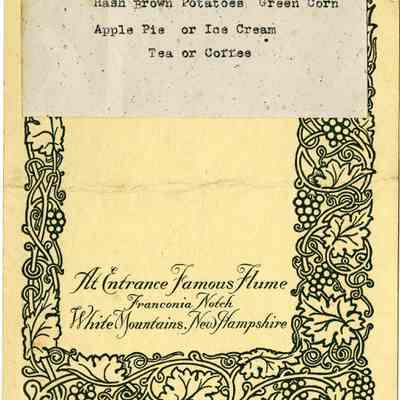 Hash Brown Potatoes Green Corn
Apple Pie or Ice Cream
Tea or Coffee
At Entrance Famous Flume
Franconia Notch
White Mountains, New Hampshire